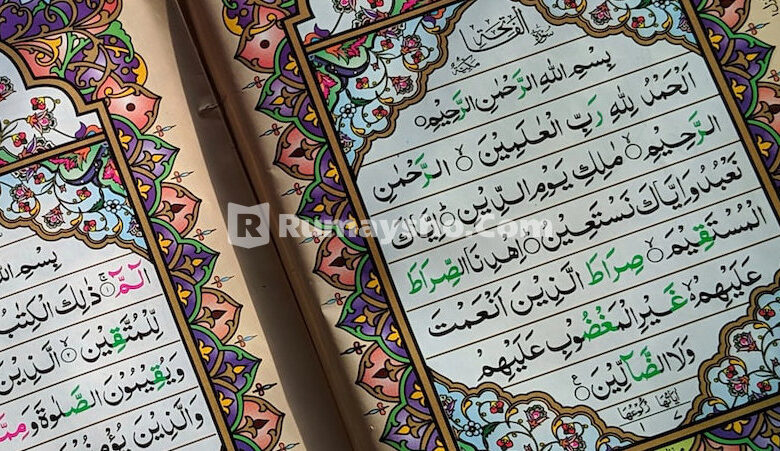 سورة الفاتحة
مكية
بِسْمِ اللهِ الرَّحْمٰنِ الرَّحِيْمِ
اَلْحَمْدُ لِلّٰهِ رَبِّ الْعٰلَمِيْنَ ۙ الرَّحْمٰنِ
الرَّحِيْمِ ۙ مٰلِكِ يَوْمِ الدِّيْنِ ۗ اِيَّاكَ
نَعْبُدُ وَاِيَّاكَ نَسْتَعِيْنُ ۗ اِهْدِنَا الصِّرَاطَ
الْمُسْتَقِيْمَ ۙ صِرَاطَ الَّذِيْنَ اَنْعَمْتَ
عَلَيْهِمْ ۙ غَيْرِ الْمَغْضُوْبِ عَلَيْهِمْ
وَلَا الضَّآلِّيْنَ
بِسْمِ اللهِ
الٓمّٓ ۚ ذٰلِكَ الْكِتٰبُ
لِّلْمُتَّقِيْنَ ۙ الَّذِيْنَ
وَيُقِيْمُوْنَ الصَّلٰوةَ وَمِمَّا
وَالَّذِيْنَ
Rumaysho.Com